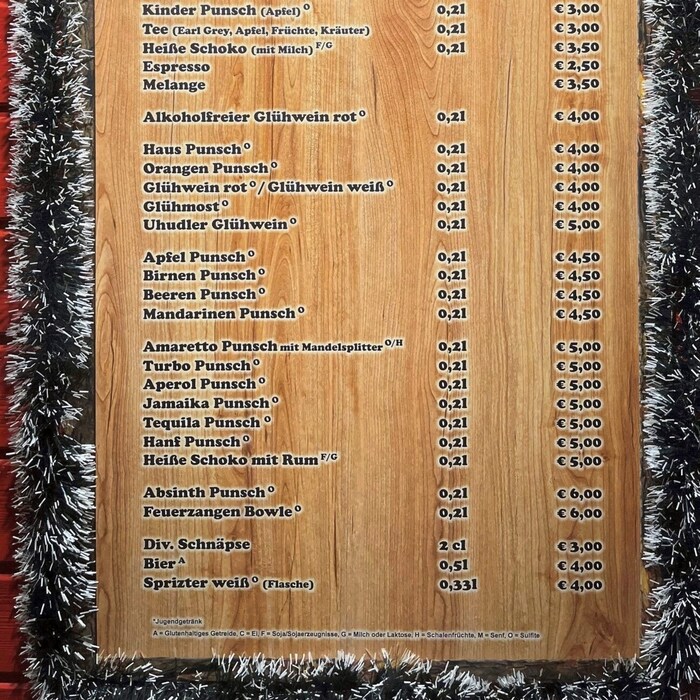 Kinder Punsch (Apfel) O 0,2l € 3,00
Tee (Earl Grey, Apfel, Früchte, Kräuter) 0,2l € 3,00
Heiße Schoko (mit Milch) F/G 0,2l € 3,50
Espresso € 2,50
Melange € 3,50
Alkoholfreier Glühwein rot O 0,2l € 4,00
Haus Punsch O 0,2l € 4,00
Orangen Punsch O 0,2l € 4,00
Glühwein rot O / Glühwein weiß O 0,2l € 4,00
Glühmost O 0,2l € 4,00
Uhudler Glühwein O 0,2l € 5,00
Apfel Punsch O 0,2l € 4,50
Birnen Punsch O 0,2l € 4,50
Beeren Punsch O 0,2l € 4,50
Mandarinen Punsch O 0,2l € 4,50
Amaretto Punsch mit Mandelsplitter O/H 0,2l € 5,00
Turbo Punsch O 0,2l € 5,00
Aperol Punsch O 0,2l € 5,00
Jamaika Punsch O 0,2l € 5,00
Tequila Punsch O 0,2l € 5,00
Hanf Punsch O 0,2l € 5,00
Heiße Schoko mit Rum F/G 0,2l € 5,00
Absinth Punsch O 0,2l € 6,00
Feuerzangen Bowle O 0,2l € 6,00
Div. Schnäpse 2 cl € 3,00
Bier A 0,5l € 4,00
Sprizter weiß O (Flasche) 0,33l € 4,00
*Jugendgetränk
A = Glutenhaltiges Getreide, C = Ei, F = Soja/Sojaerzeugnisse, G = Milch oder Laktose, H = Schalenfrüchte, M = Senf, O = Sulfite